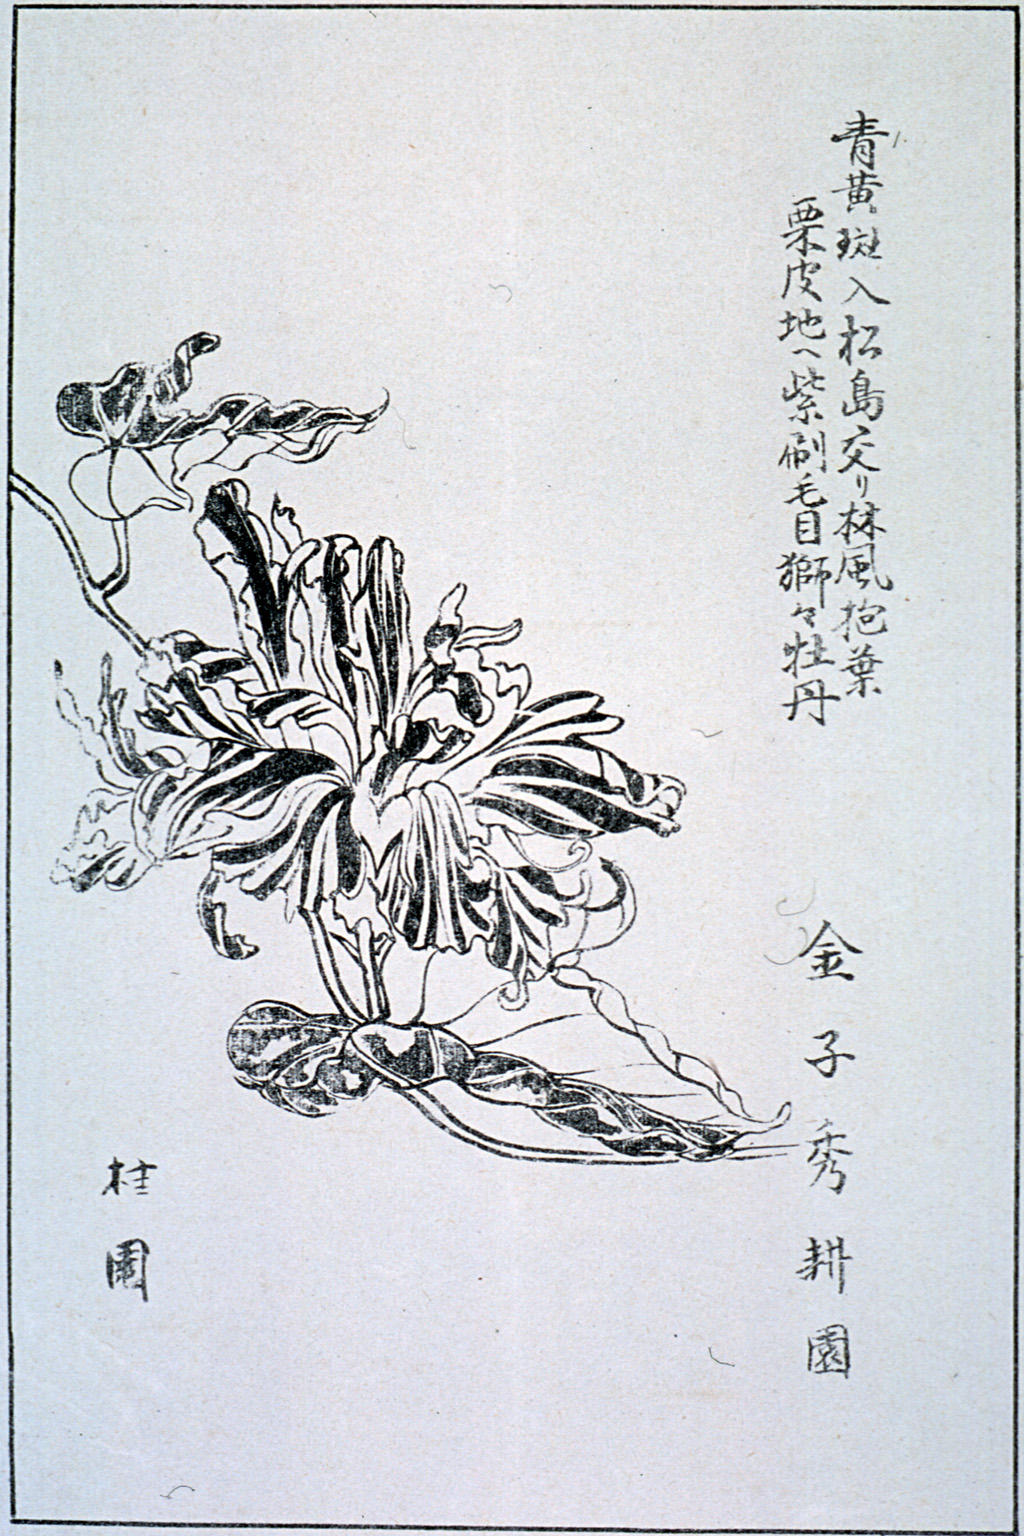 青黄斑入松島交リ林風抱葉
栗皮地ヘ紫刷毛目獅々牡丹
金子秀耕園
桂園